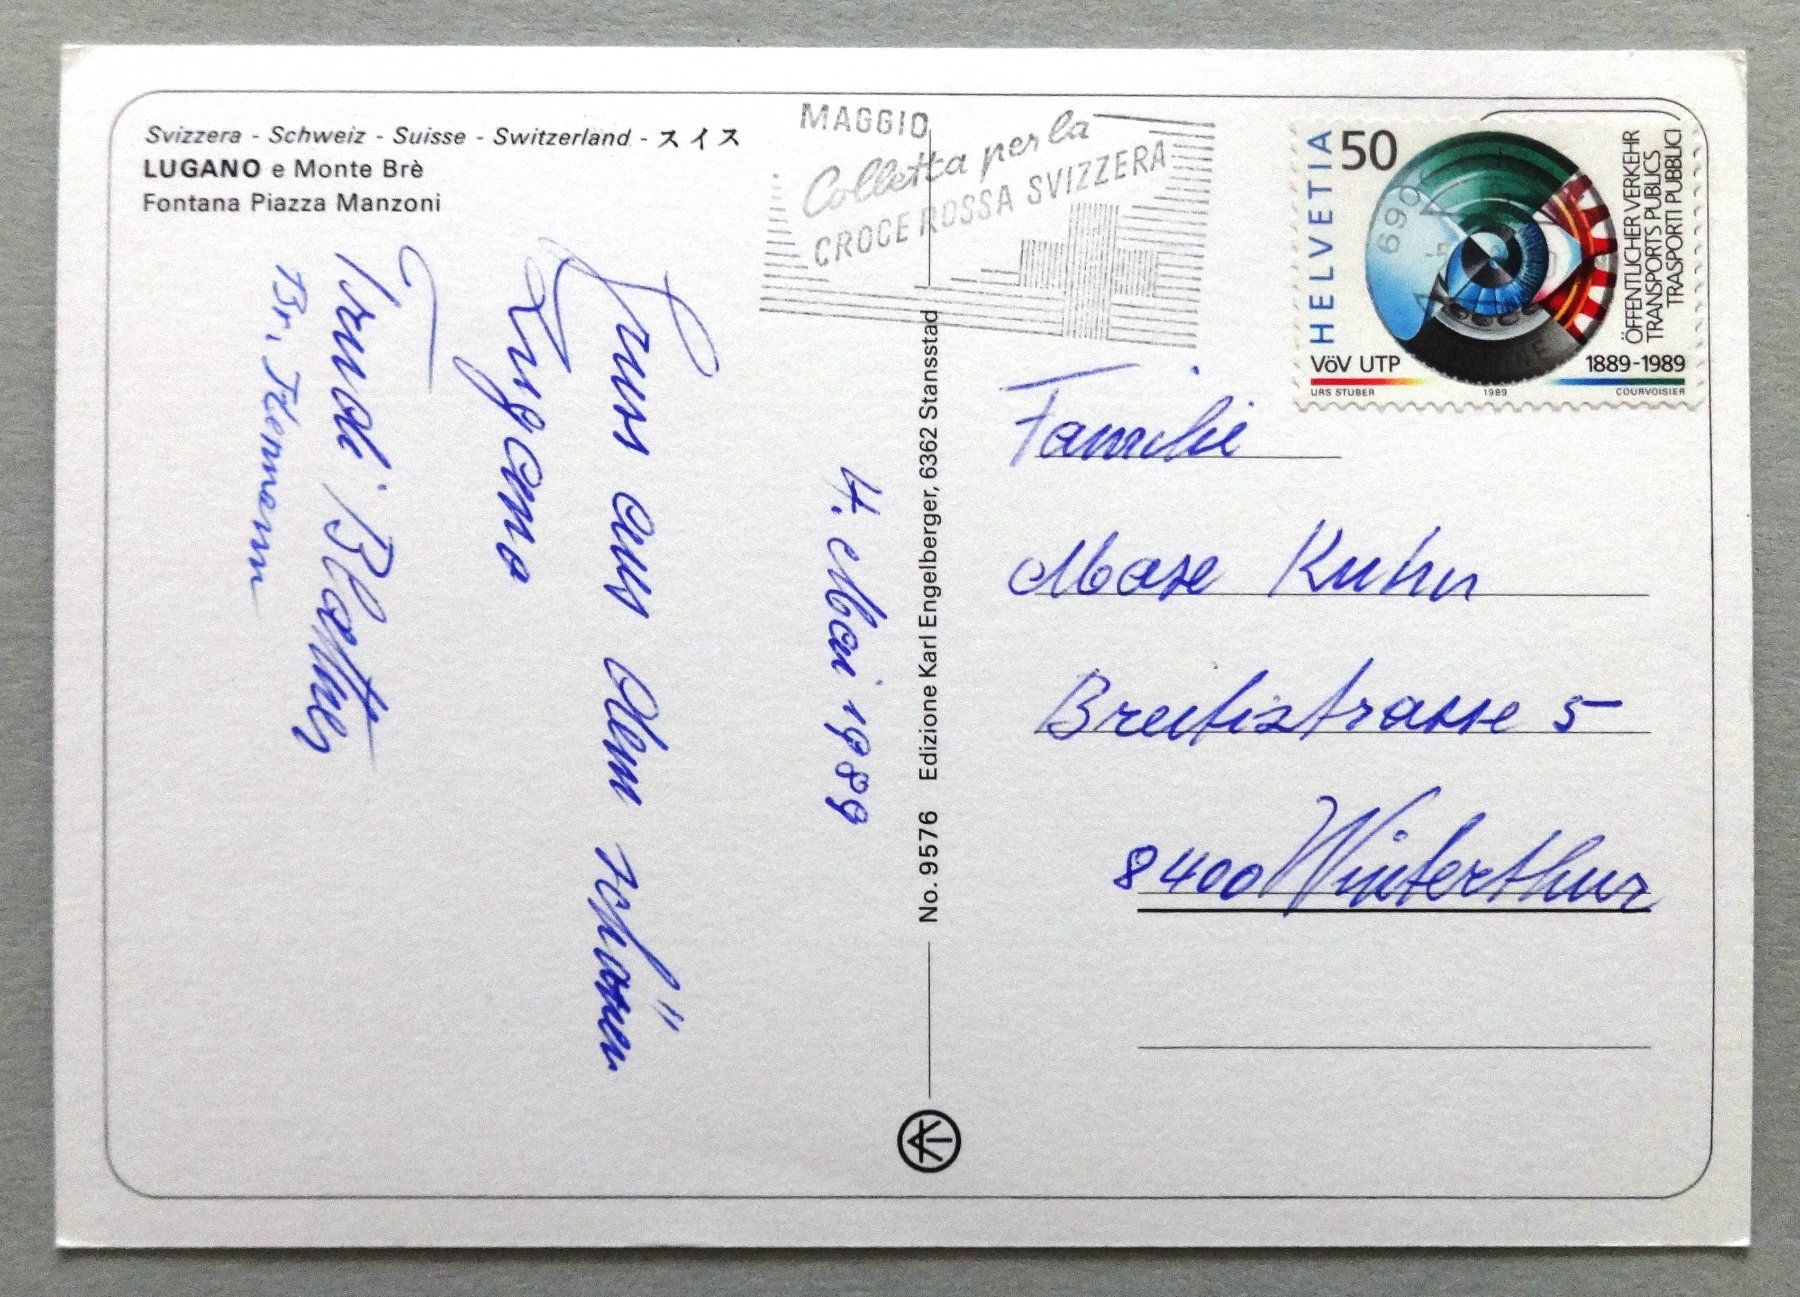 Svizzera - Schweiz - Suisse - Switzerland - スイス
LUGANO e Monte Brè
Fontana Piazza Manzoni
MAGGIO
Colletta per la
CROCE ROSSA SVIZZERA
HELVETIA
50
690
ÖFFENTLICHER VERKEHR
TRANSPORTS PUBLICS
TRASPORTI PUBBLICI
VöV UTP
1889-1989
URS STUBER
1989
COURVOISIER
4. Mai 1989
aus dem schönen
Lugano
Trudi Blatter
No. 9576 Edizione Karl Engelberger, 6362 Stansstad
Familie
Kuhn
5
8400 Winterthur